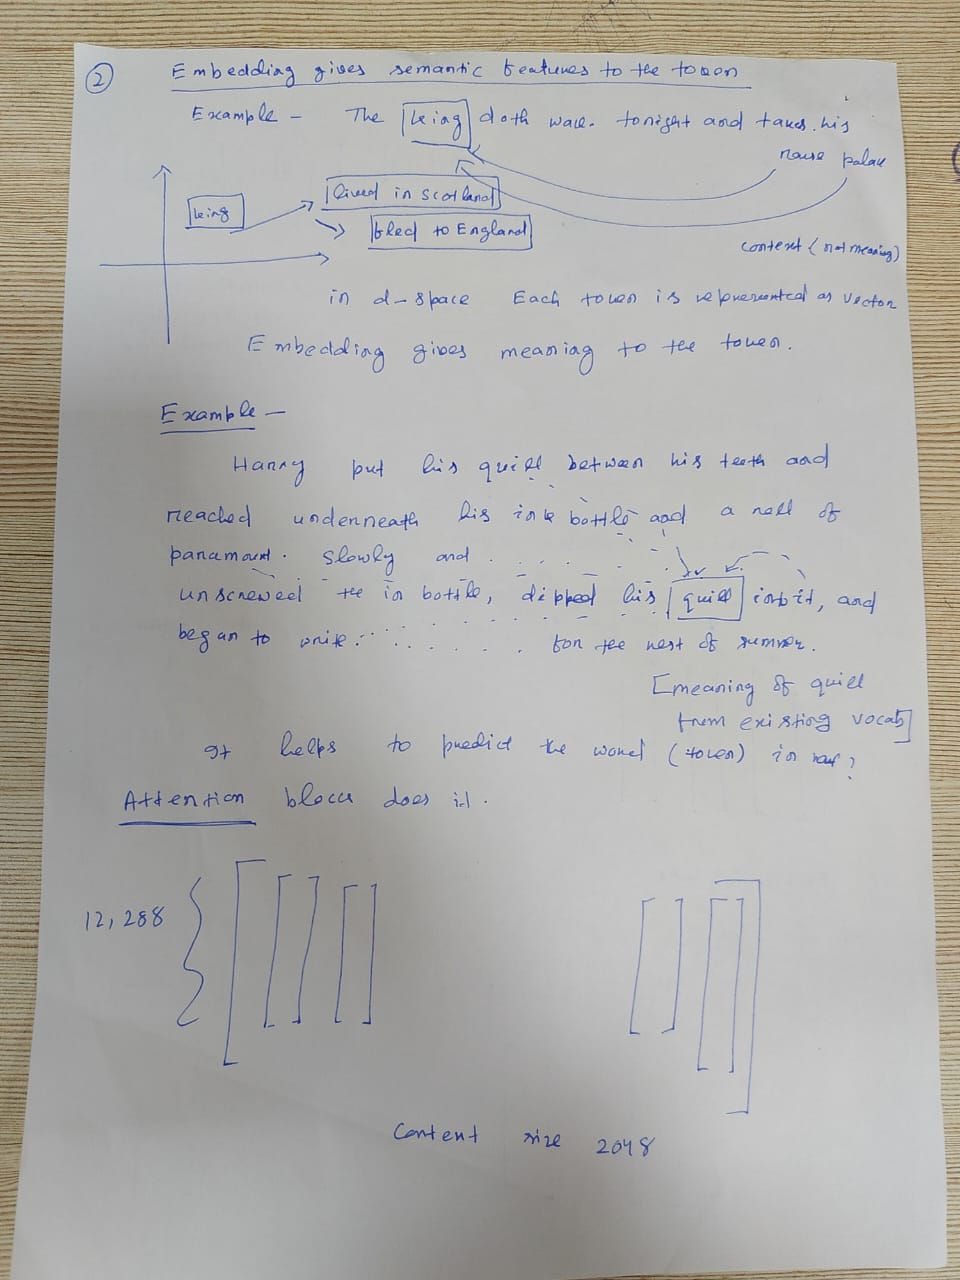 2
Embedding gives semantic features to the token
Example - The king doth wake tonight and takes his
rouse palace
king
lived in Scotland
fled to England
context (not meaning)
in d-space Each token is represented as vector
Embedding gives meaning to the token.
Example -
Harry put his quill between his teeth and
reached underneath his ink bottle and a roll of
paramount. slowly and . . . . . . .
unscrewed the in bottle, dipped his quill into it, and
began to write . . . . . . . for the rest of summer.
[meaning of quill
from existing vocab]
It helps to predict the word (token) in
Attention block does it.
12,288
Content size 2048